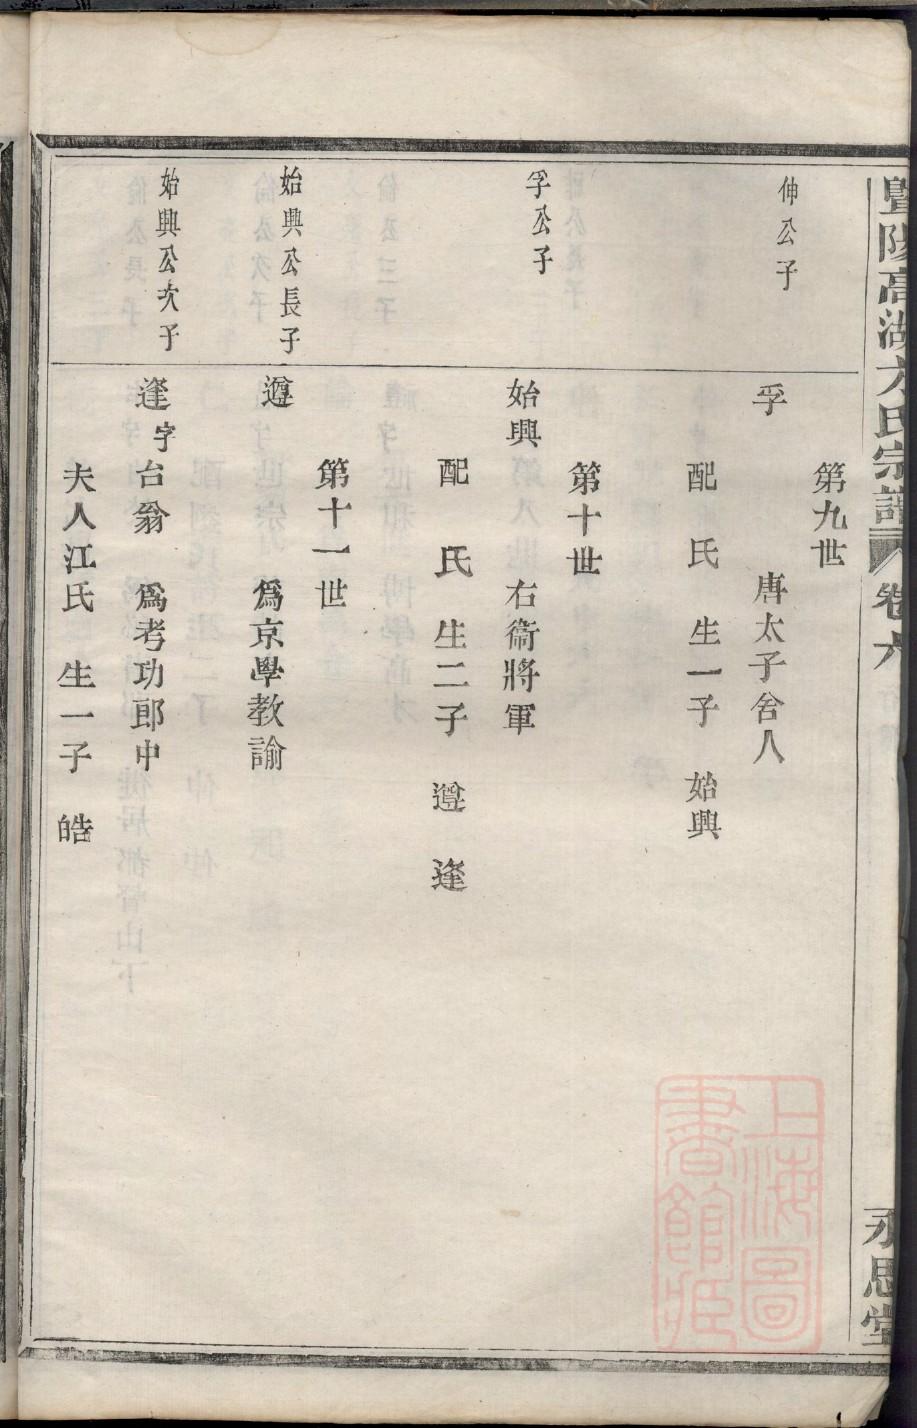 暨陽高湖方氏宗譜 卷六 永思堂
第九世
伸公子
孚 唐太子舍人
配 氏 生一子 始興
第十世
孚公子
始興 右衞將軍
配 氏 生二子 遵 逢
第十一世
始興公長子
遵 爲京學教諭
始興公次子
逢字台翁 爲考功郎中
夫人江氏 生一子 皓
上海圖
書館藏